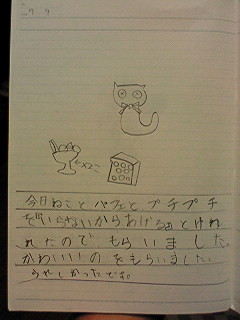 ×2こ
今日ねことパフェとプチプチ
を「いらないからあげる」とくれ
れたので、もらいました。
かわいいのをもらいました。
うれしかったです。